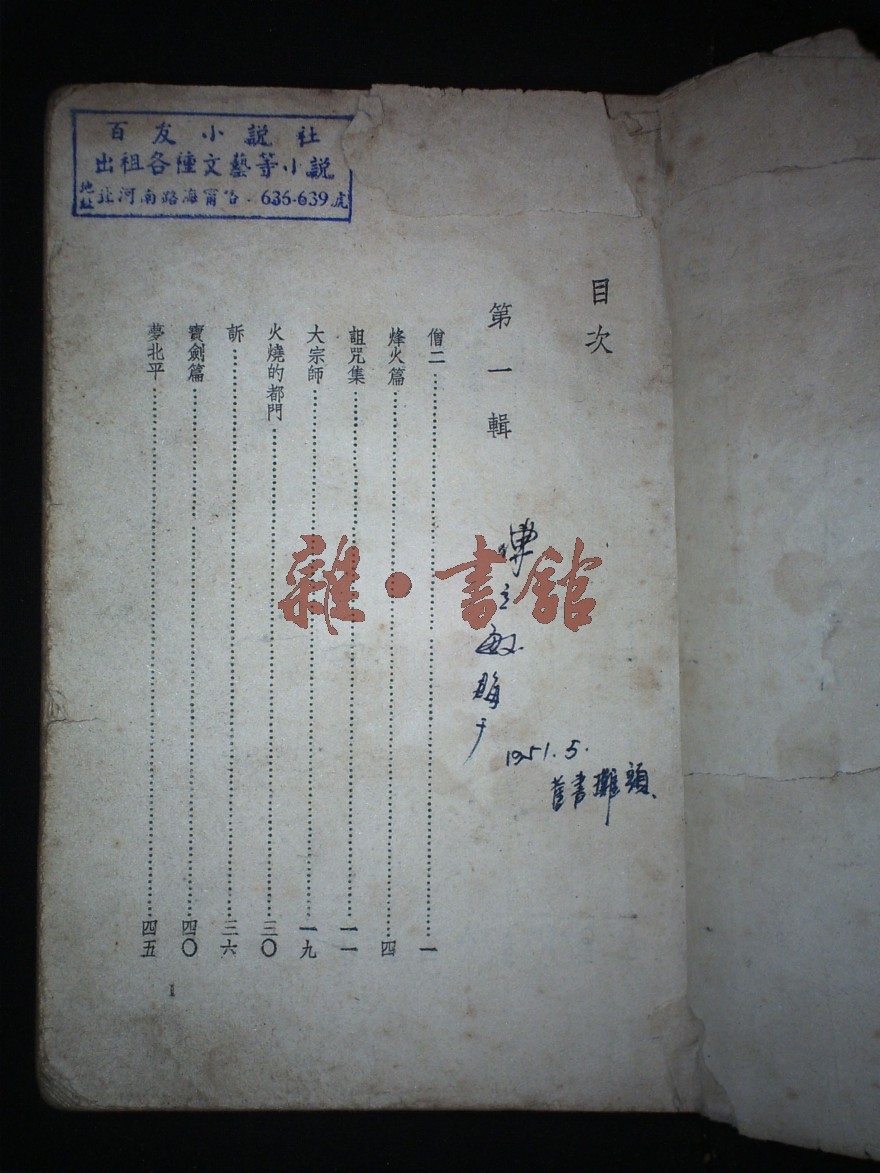 百友小説社
出祖各種文藝等小説
地址北河南路海甯召.635-639虎
目次
第一輯
僧二……一
烽火篇……四
詛咒集……一一
大宗師……一九
火燒的都門……三〇
訴……三六
寶劍篇……四〇
夢北平……四五
1
購于
1951.5.
舊書攤頭
雜·書館